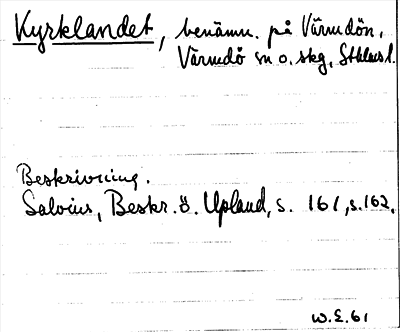 Kyrklandet, benämn. på Värmdön,
Värmdö sn o. skg, Sthlms l.
Beskrivning.
Salvius, Beskr. ö. Upland, s. 161, s. 162.
W.E. 61